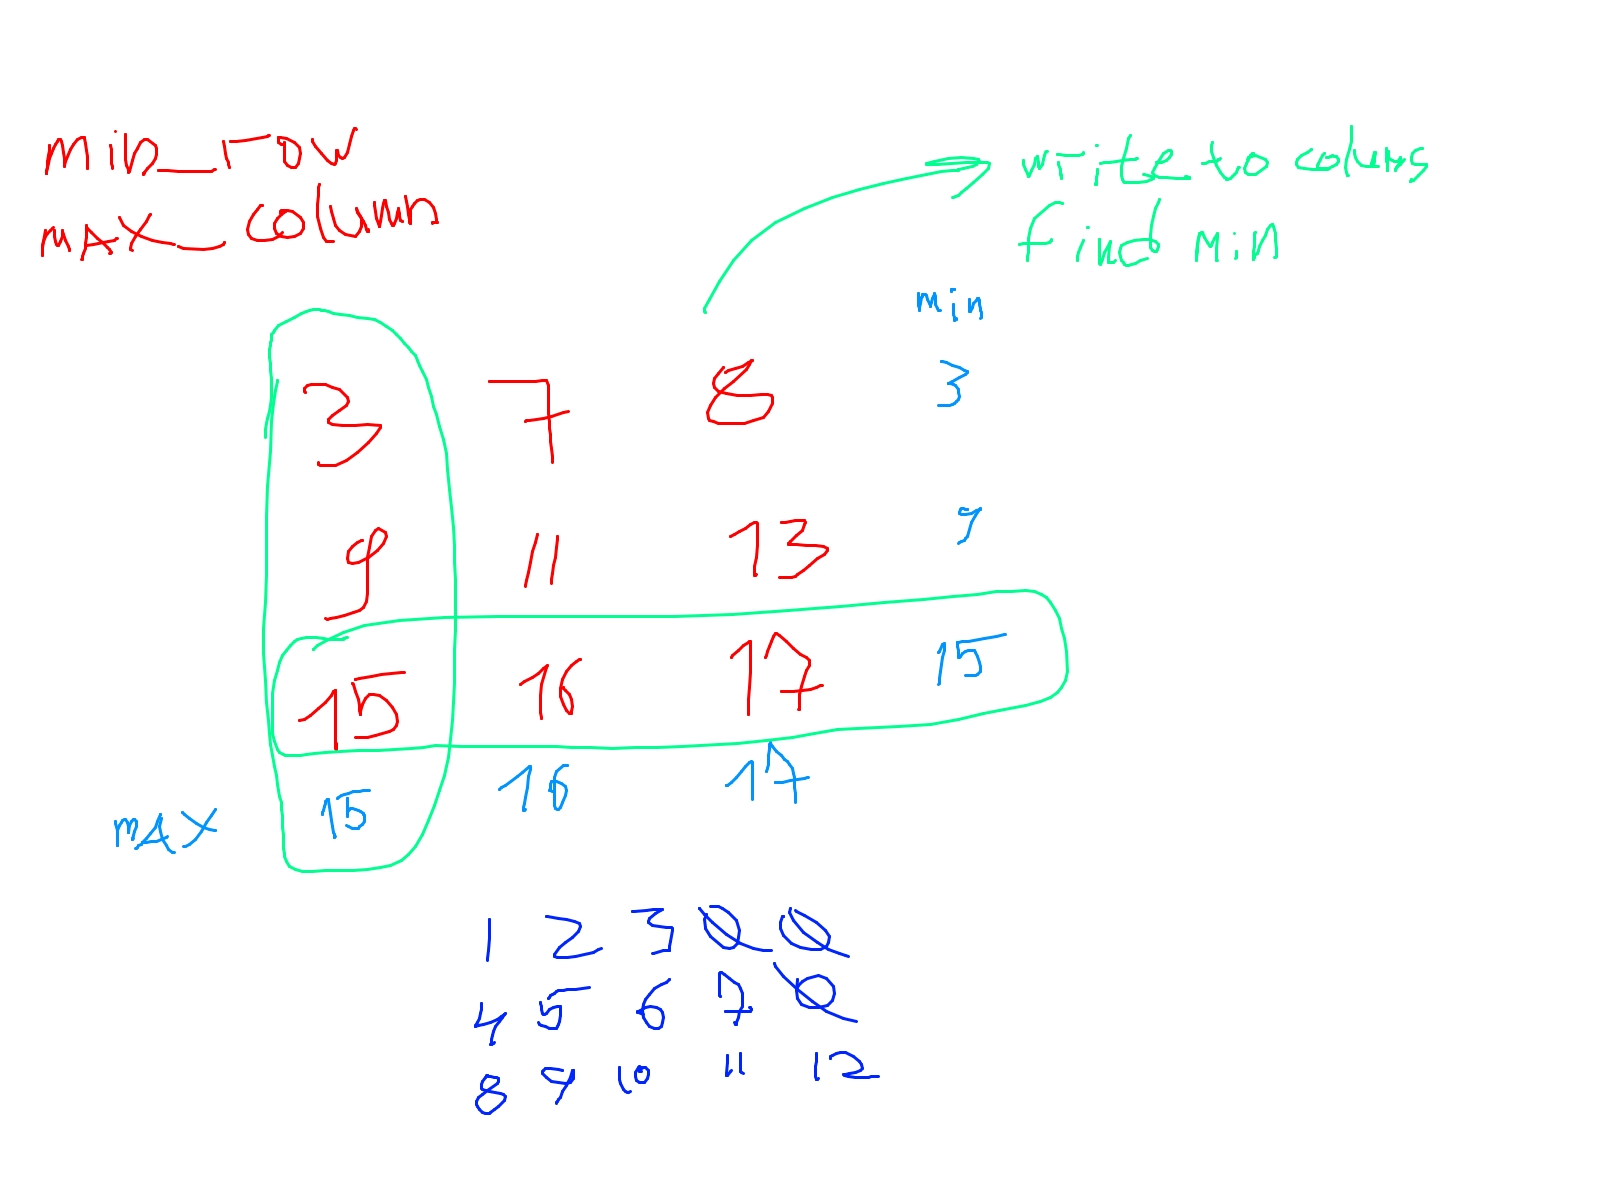 min_row
MAX_column
write to colums
find Min
min
3 7 8 3
9 11 13 9
15 16 17 15
MAX 15 16 17
1 2 3 0 0
4 5 6 7 0
8 9 10 11 12